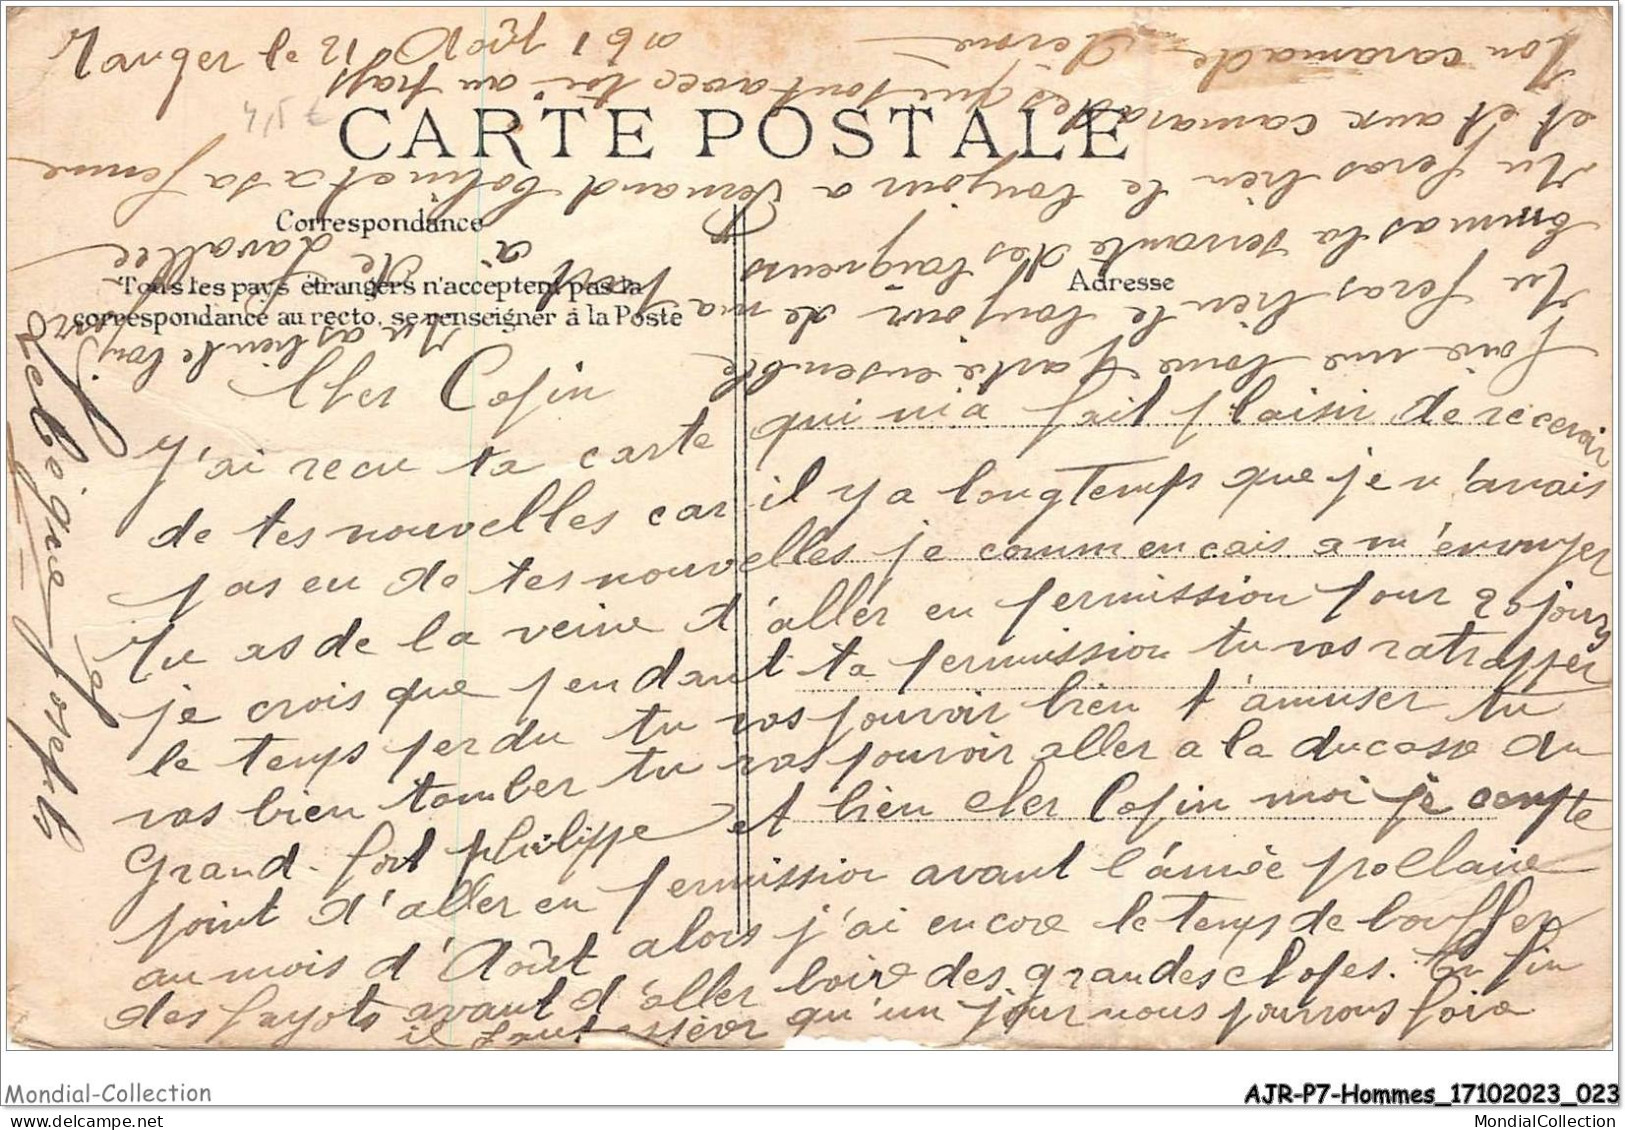 CARTE POSTALE
Correspondance
Tous les pays étrangers n'acceptent pas la
correspondance au recto, se renseigner à la Poste
Adresse
Cher Copin
J'ai recu ta carte qui m'a fait plaisir de recevoir
de tes nouvelles car il y a longtemps que je n'avais
pas eu de tes nouvelles je commencais a m'ennuyer
Tu as de la veine d'aller en permission pour 20 jours
je crois que pendant ta permission tu vas ratrapper
le temps perdu tu vas pouvoir bien t'amuser tu
vas bien tomber tu vas pouvoir aller a la ducasse du
Grand-fort philippe et bien cher Copin moi je compte
point d'aller en permission avant l'année pollaire
au mois d'Août alors j'ai encore le temps de bouffer
des fayots avant d'aller boire des grandes clopes. En fin
il faut espérer qu'un jour nous pourrons foire
foire une bonne partie ensemble
Tu feras bien le bonjour de ma part
a la servante des
Tu feras bien le bonjour a Fernand et a sa femme
et aux camarades qui sont avec toi au pays
Ton camarade
Tanger le 12
Tu as bien le bonjour
de Lavallée
à
Lebèque Joseph
4,5 €
Mondial-Collection
AJR-P7-Hommes_17102023_023
MondialCollection